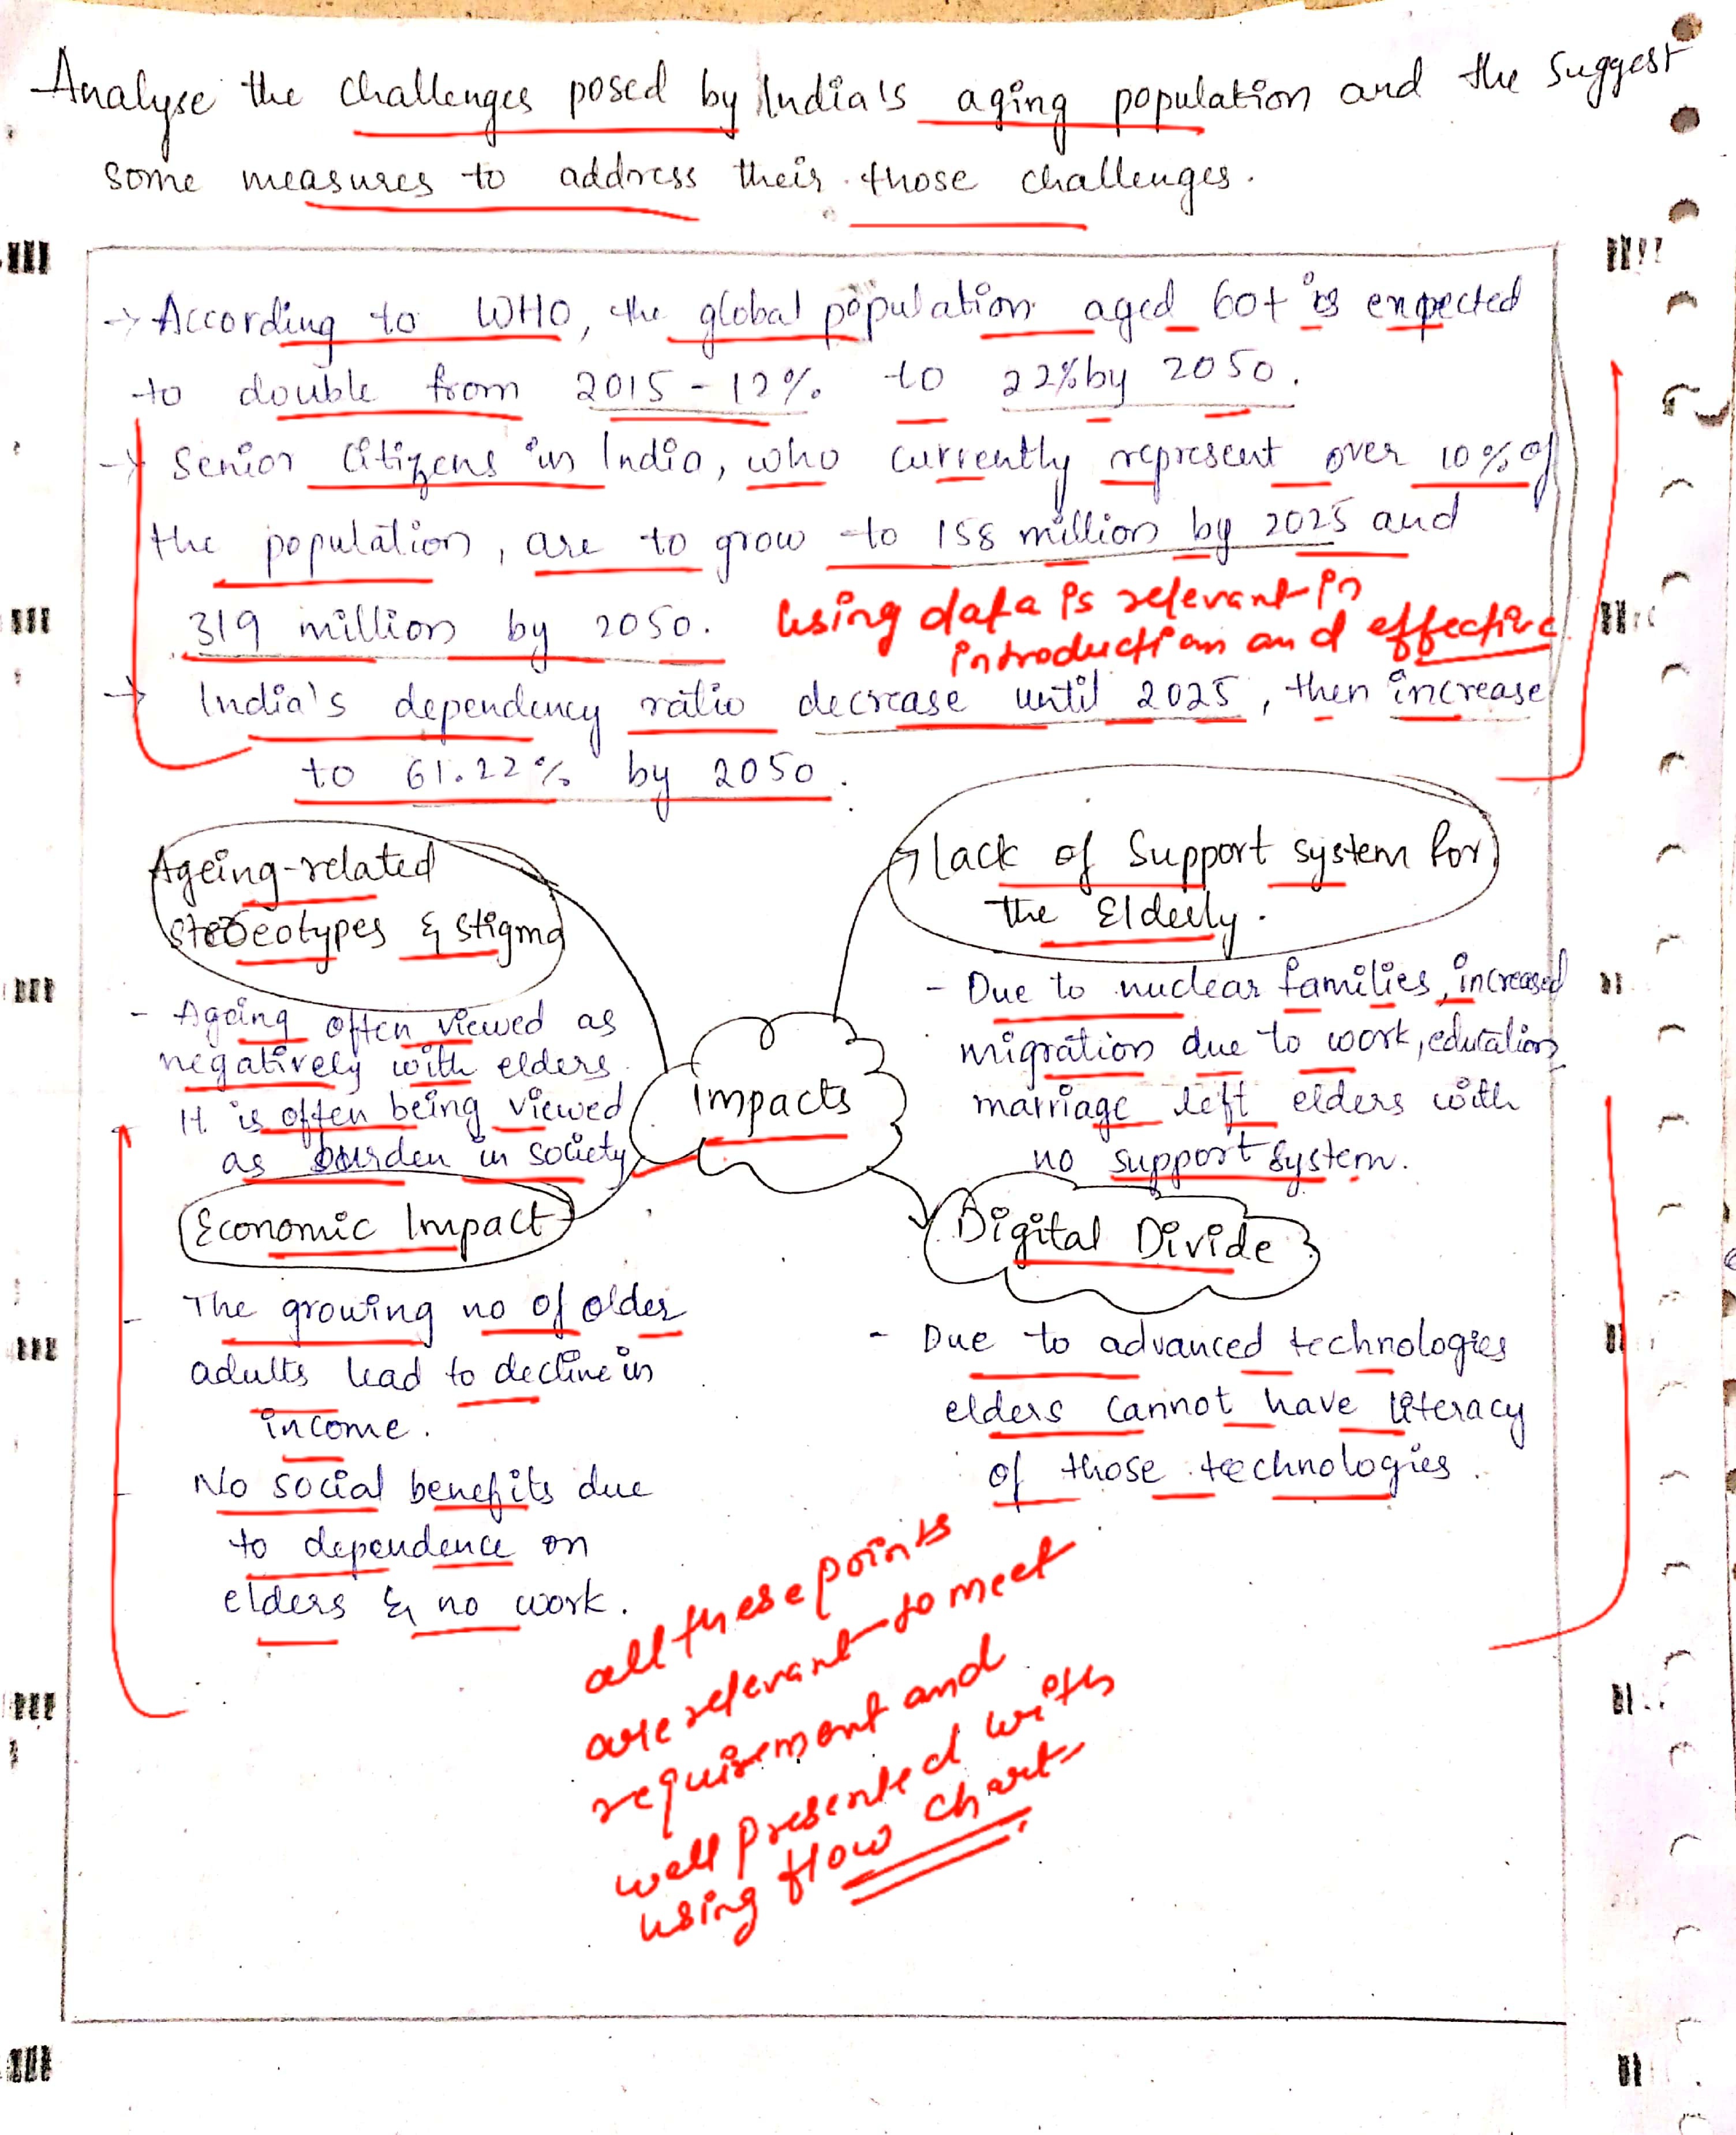 Analyse the challenges posed by India's aging population and the suggest
some measures to address their those challenges.
→ According to WHO, the global population aged 60+ is expected
to double from 2015 - 12% to 22% by 2050.
→ Senior Citizens in India, who currently represent over 10% of
the population, are to grow to 158 million by 2025 and
319 million by 2050.
using data is relevant in
introduction and effective
→ India's dependency ratio decrease until 2025, then increase
to 61.22% by 2050.
Ageing-related
stereotypes & stigma
- Ageing often viewed as
negatively with elders.
- It is often being viewed
as burden in society
Lack of Support system for
the Elderly.
- Due to nuclear families, increased
migration due to work, education,
marriage left elders with
no support system.
Impacts
Economic Impact
- The growing no of older
adults lead to decline in
income.
- No social benefits due
to dependence on
elders & no work.
Digital Divide
- Due to advanced technologies
elders cannot have literacy
of those technologies.
all these points
are relevant to meet
requirement and
well presented with
using flow chart